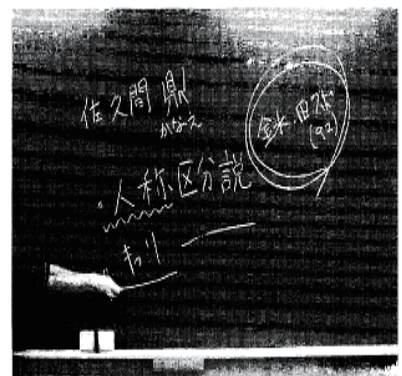 佐久間 鼎
かなえ
金水・田久保
(92)
・人称区分説